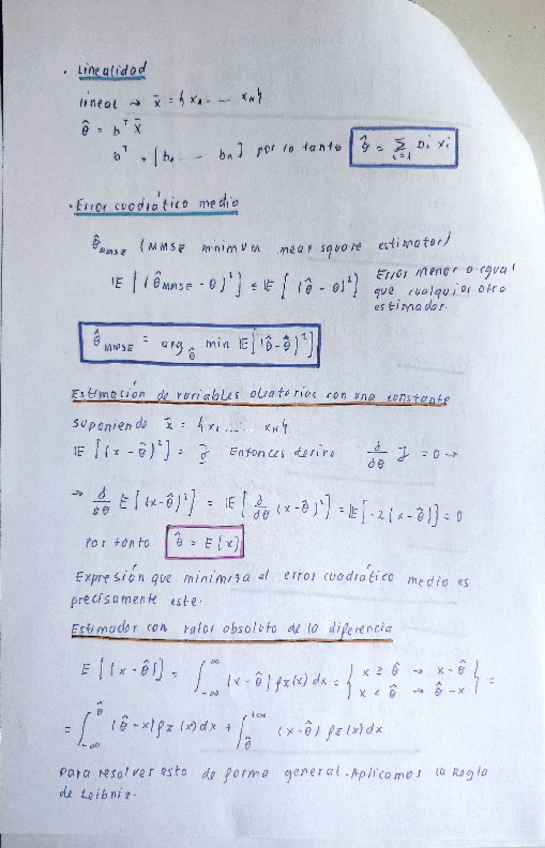 · Linealidad
lineal → x̄ = { x₁ . - ... x_N }
θ̂ = bᵀ x̄
bᵀ = [b₀ - - bₙ] por lo tanto θ̂ = Σ_{i=1} bᵢ xᵢ
· Error cuadrático medio
θ̂_MMSE (MMSE minimum mean square estimator)
IE[(θ̂_MMSE - θ)²] ≤ IE[(θ̂ - θ)²] Error menor o igual
que cualquier otro
estimador.
θ̂_MMSE = arg_θ̂ min IE[(θ̂ - θ̂)²]
Estimación de variables aleatorias con una constante
suponiendo x̄ = { x₁ .... x_N }
IE[(x - θ̂)²] = J Entonces derivo d/dθ J = 0 →
→ d/dθ E[(x-θ̂)²] = IE[d/dθ (x-θ̂)²] = IE[-2(x-θ̂)] = 0
Por tanto θ̂ = E[x]
Expresión que minimiza el error cuadrático medio es
precisamente este.
Estimador con valor absoluto de la diferencia
E[|x-θ̂|] = ∫_{-∞}^{∞} |x-θ̂| fz(x) dx = { x ≥ θ̂ → x-θ̂
x < θ̂ → θ̂-x } =
= ∫_{-∞}^{θ̂} (θ̂-x) fz(x) dx + ∫_{θ̂}^{+∞} (x-θ̂) fz(x) dx
para resolver esto de forma general. Aplicamos la Regla
de Leibniz.